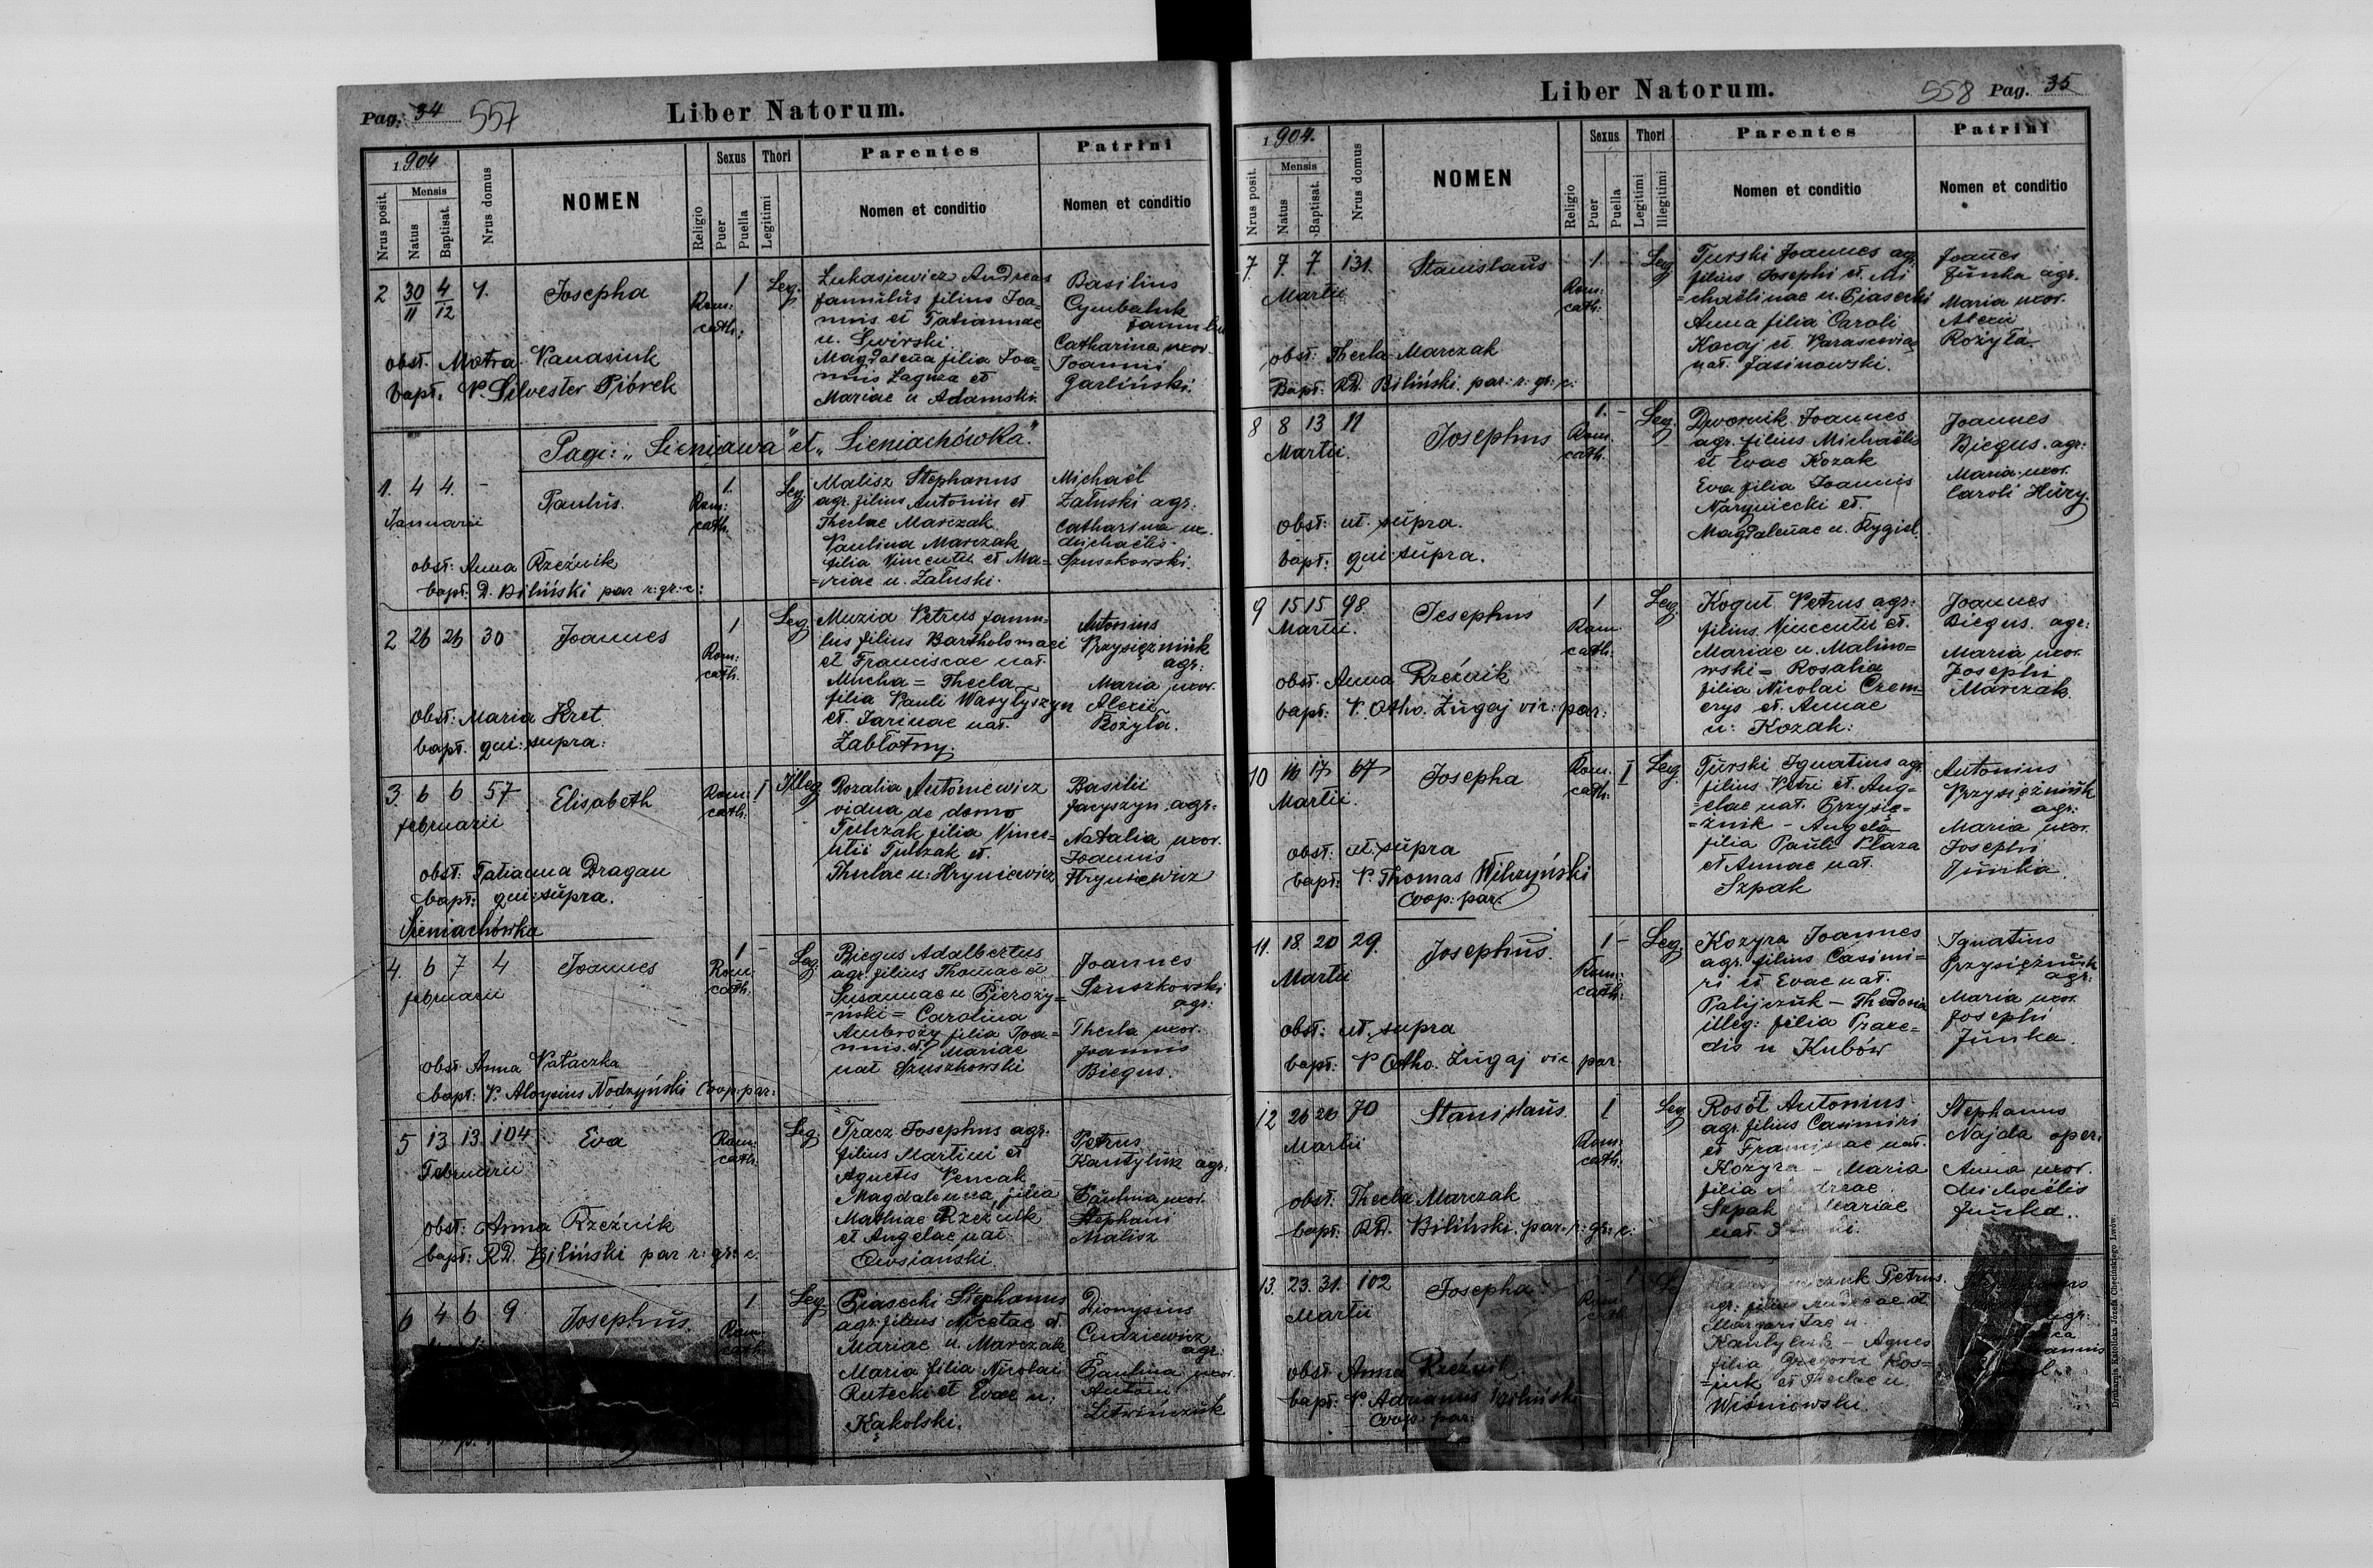 Pag. 34 557
Liber Natorum.
1904
Nrus posit.
Mensis
Natus
Baptisat.
Nrus domus
NOMEN
Religio
Sexus
Puer
Puella
Thori
Legitimi
Parentes
Nomen et conditio
Patrini
Nomen et conditio
2 30/11 4/12 4. Josepha
Rom: cath:
1
Leg.
Łukasiewicz Andreas
famulus filius Joa=
nnis et Tatiannae
n. Swirski
Magdalena filia Joa=
nnis Laguza et
Mariae n Adamski.
Basilius
Cymbaluk
famulus
Catharina uxor.
Joannis
Garliński.
obst. Motra Panasiuk
bapt. P. Silvester Piórek
Pagi: „Sieniawa" et „Sieniachówka."
1. 4 4. -
Januarii
Paulus.
Rom: cath.
1.
Leg.
Malisz Stephanus
agr. filius Antonii et
Theclae Marczak
Paulina Marczak
filia Vincentii et Ma=
=riae n. Załuski.
Michaël
Załuski agr:
Catharina ux.
Michaëlis
Szuszkowski.
obst: Anna Rzeźnik
bapt: D. Biliński par r: gr: c:
2 26 26 30 Joannes
Rom: cath.
1
Leg.
Muzia Petrus famu=
lus filius Bartholomaei
et Franciscae nat.
Mucha = Thecla
filia Pauli Wasylyszyn
et Jarinae nat.
Zabłotny.
Antonius
Przysiężniuk
agr:
Maria uxor.
Alexii
Rożyła.
obst: Maria Kret.
bapt. qui: supra:
3. 6 6 57
februarii
Elisabeth
Rom: cath:
1
Illeg.
Rozalia Antoniewicz
vidua de domo
Tulczak filia Vince=
ntii Tulczak et.
Theclae n: Hryniewicz
Basilii
Jacyszyn agr:
Natalia uxor.
Joannis
Hryniewicz
obst: Tatianna Dragan
bapt: qui: supra.
Sieniachówka
4. 6 7 4
februarii
Joannes
Rom: cath.
1 -
Leg.
Biegus Adalbertus
agr. filius Thomae et
Susannae n Pieroży=
=ński = Carolina
Ambroży filia Joa=
nnis et Mariae
nat Szuszkowski
Joannes
Szuszkowski
agr:
Thecla uxor.
Joannis
Biegus.
obst: Anna Pataczka
bapt: P. Aloysius Nodzyński Coop: par:
5 13 13 104
Februarii
Eva
Rom: cath.
Leg
Tracz Josephus agr.
filius Martini et
Agnetis Pencak
Magdalenna filia
Mathiae Rzeźnik
et Angelae nat.
Owsianski.
Petrus
Kantyluk agr:
Paulina uxor.
Stephani
Malisz
obst: Anna Rzeźnik
bapt: RD. Biliński par r: gr: c.
6 4 6 9
Josephus.
Rom cath
1
Leg
Piasecki Stephanus
agr: filius Nicetae et
Mariae n. Marczak
Maria filia Nicolai
Rutecki et Evae n:
Kąkolski.
Dionysius
Cudziewicz
agr:
Paulina uxor.
Antoni
Litwińczuk
Liber Natorum.
558 Pag. 35
1904.
Nrus posit.
Mensis
Natus
Baptisat.
Nrus domus
NOMEN
Religio
Sexus
Puer
Puella
Thori
Legitimi
Illegitimi
Parentes
Nomen et conditio
Patrini
Nomen et conditio
7. 7. 7 131.
Martii
Stanislaus
Rom: cath:
1.
Leg
Turski Joannes agr.
filius Josephi et. Mi
=chaëlinae n. Piasecki
Anna filia Caroli
Kocaj et Parasceviae
nat. Jasinowski.
Joannes
Junka agr.
Maria uxor.
Alexii
Rożyła
obst: Thecla Marczak
Bapt: RD. Biliński. par: r: gr: c:
8 8 13 11
Martii.
Josephus
Rom. cath.
1. -
Leg.
Dwornik Joannes
agr. filius Michaëlis
et Evae Kozak
Eva filia Joannis
Naryniecki et.
Magdalenae n. Rygiel
Joannes
Biegus. agr:
Maria uxor.
Caroli Hury.
obst: ut. supra.
bapt: qui: supra.
9 15 15 98.
Martii.
Josephus
Rom. cath:
1
Leg.
Kogut Petrus agr:
filius Vincentii et.
Mariae n. Malino=
wski = Rosalia
filia Nicolai Czem=
erys et. Annae
n: Kozak.
Joannes
Biegus. agr:
Maria uxor.
Josephi
Marczak.
obst. Anna Rzeźnik
bapt: P. Otho. Żugaj vic: par:
10 16 17 67
Martii.
Josepha
Rom. cath:
1
Leg.
Turski Ignatius agr.
filius Petri et. Ang=
=elae nat. Przysię=
=żnik - Angela
filia Pauli Płaza
et Annae nat.
Szpak
Antonius
Przysiężniuk
agr:
Maria uxor.
Josephi
Junka.
obst: ut. supra
bapt: P. Thomas Wilczyński
Coop: par:
11. 18. 20 29.
Martii
Josephus.
Rom: cath:
1 -
Leg.
Kozyra Joannes
agr. filius Casimi=
ri et Evae nat.
Palijczuk - Thedosia
illeg: filia Praxe=
dis n Kubów
Ignatius
Przysiężniuk
agr:
Maria uxor.
Josephi
Junka.
obst: ut. supra
bapt: P Otho. Żugaj vic. par:
12 26 26 70
Martii
Stanislaus.
Rom: cath.
1
Leg.
Rosół Antonius
agr. filius Casimiri
et Franciscae nat.
Kozyra - Maria
filia Andreae
Szpak Mariae
nat.
Stephanus
Najda oper.
Anna uxor.
Michaëlis
Junka.
obst. Thecla Marczak
bapt: RD. Biliński. par. r: gr: c:
13. 23. 31. 102
Martii
Josepha
Rom cath
1
Le
Petrus.
agr. filius Andreae et
Margaritae n.
Kantyluk - Agnes
filia Gregorii Kos=
=iuk et Theclae n.
Wiśniowski.
agr:
obst. Anna Rzeźnik
bapt: P. Adrianus
Coop: par:
Drukarnia Katolicka Józefa Chęcińskiego Lwów.